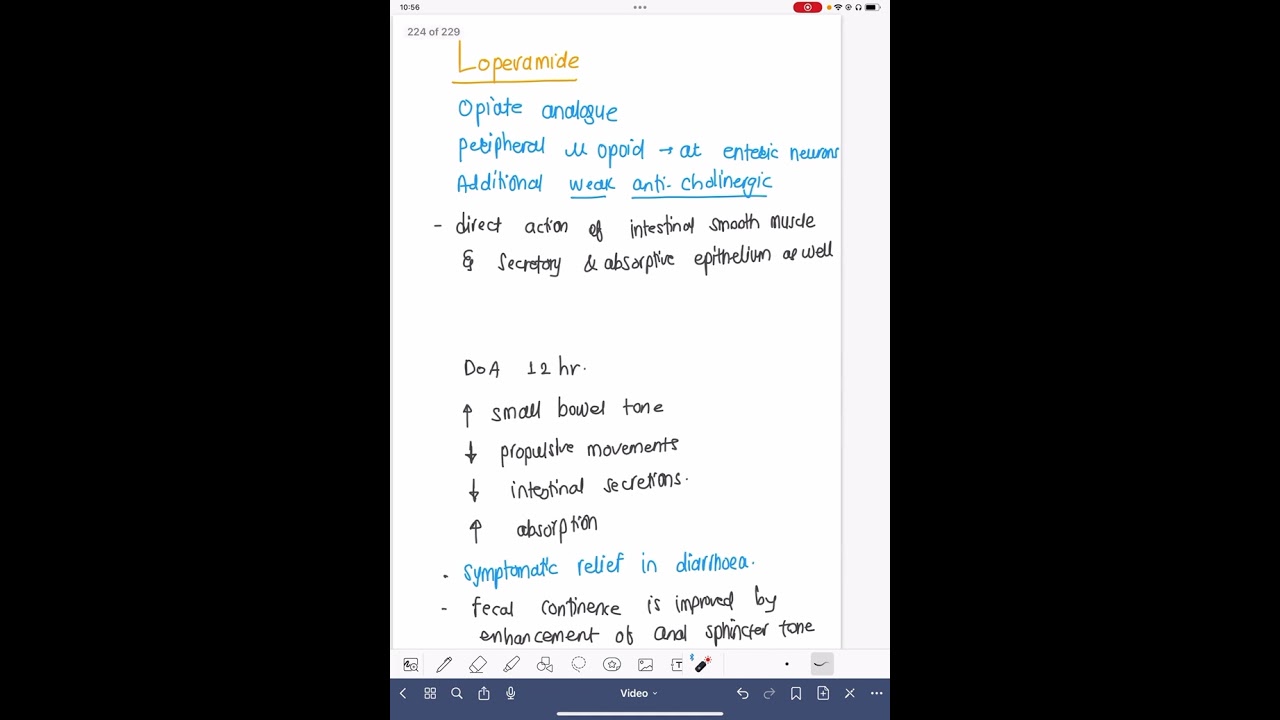 10:56
224 of 229
Loperamide
Opiate analogue
Peripheral μ opoid → at enteric neurons
Additional weak anti-cholinergic
- direct action of intestinal smooth muscle
& secretory & absorptive epithelium as well
DoA 12 hr.
↑ small bowel tone
↓ propulsive movements
↓ intestinal secretions.
↑ absorption
. Symptomatic relief in diarrhoea.
- fecal continence is improved by
enhancement of anal sphincter tone
Video